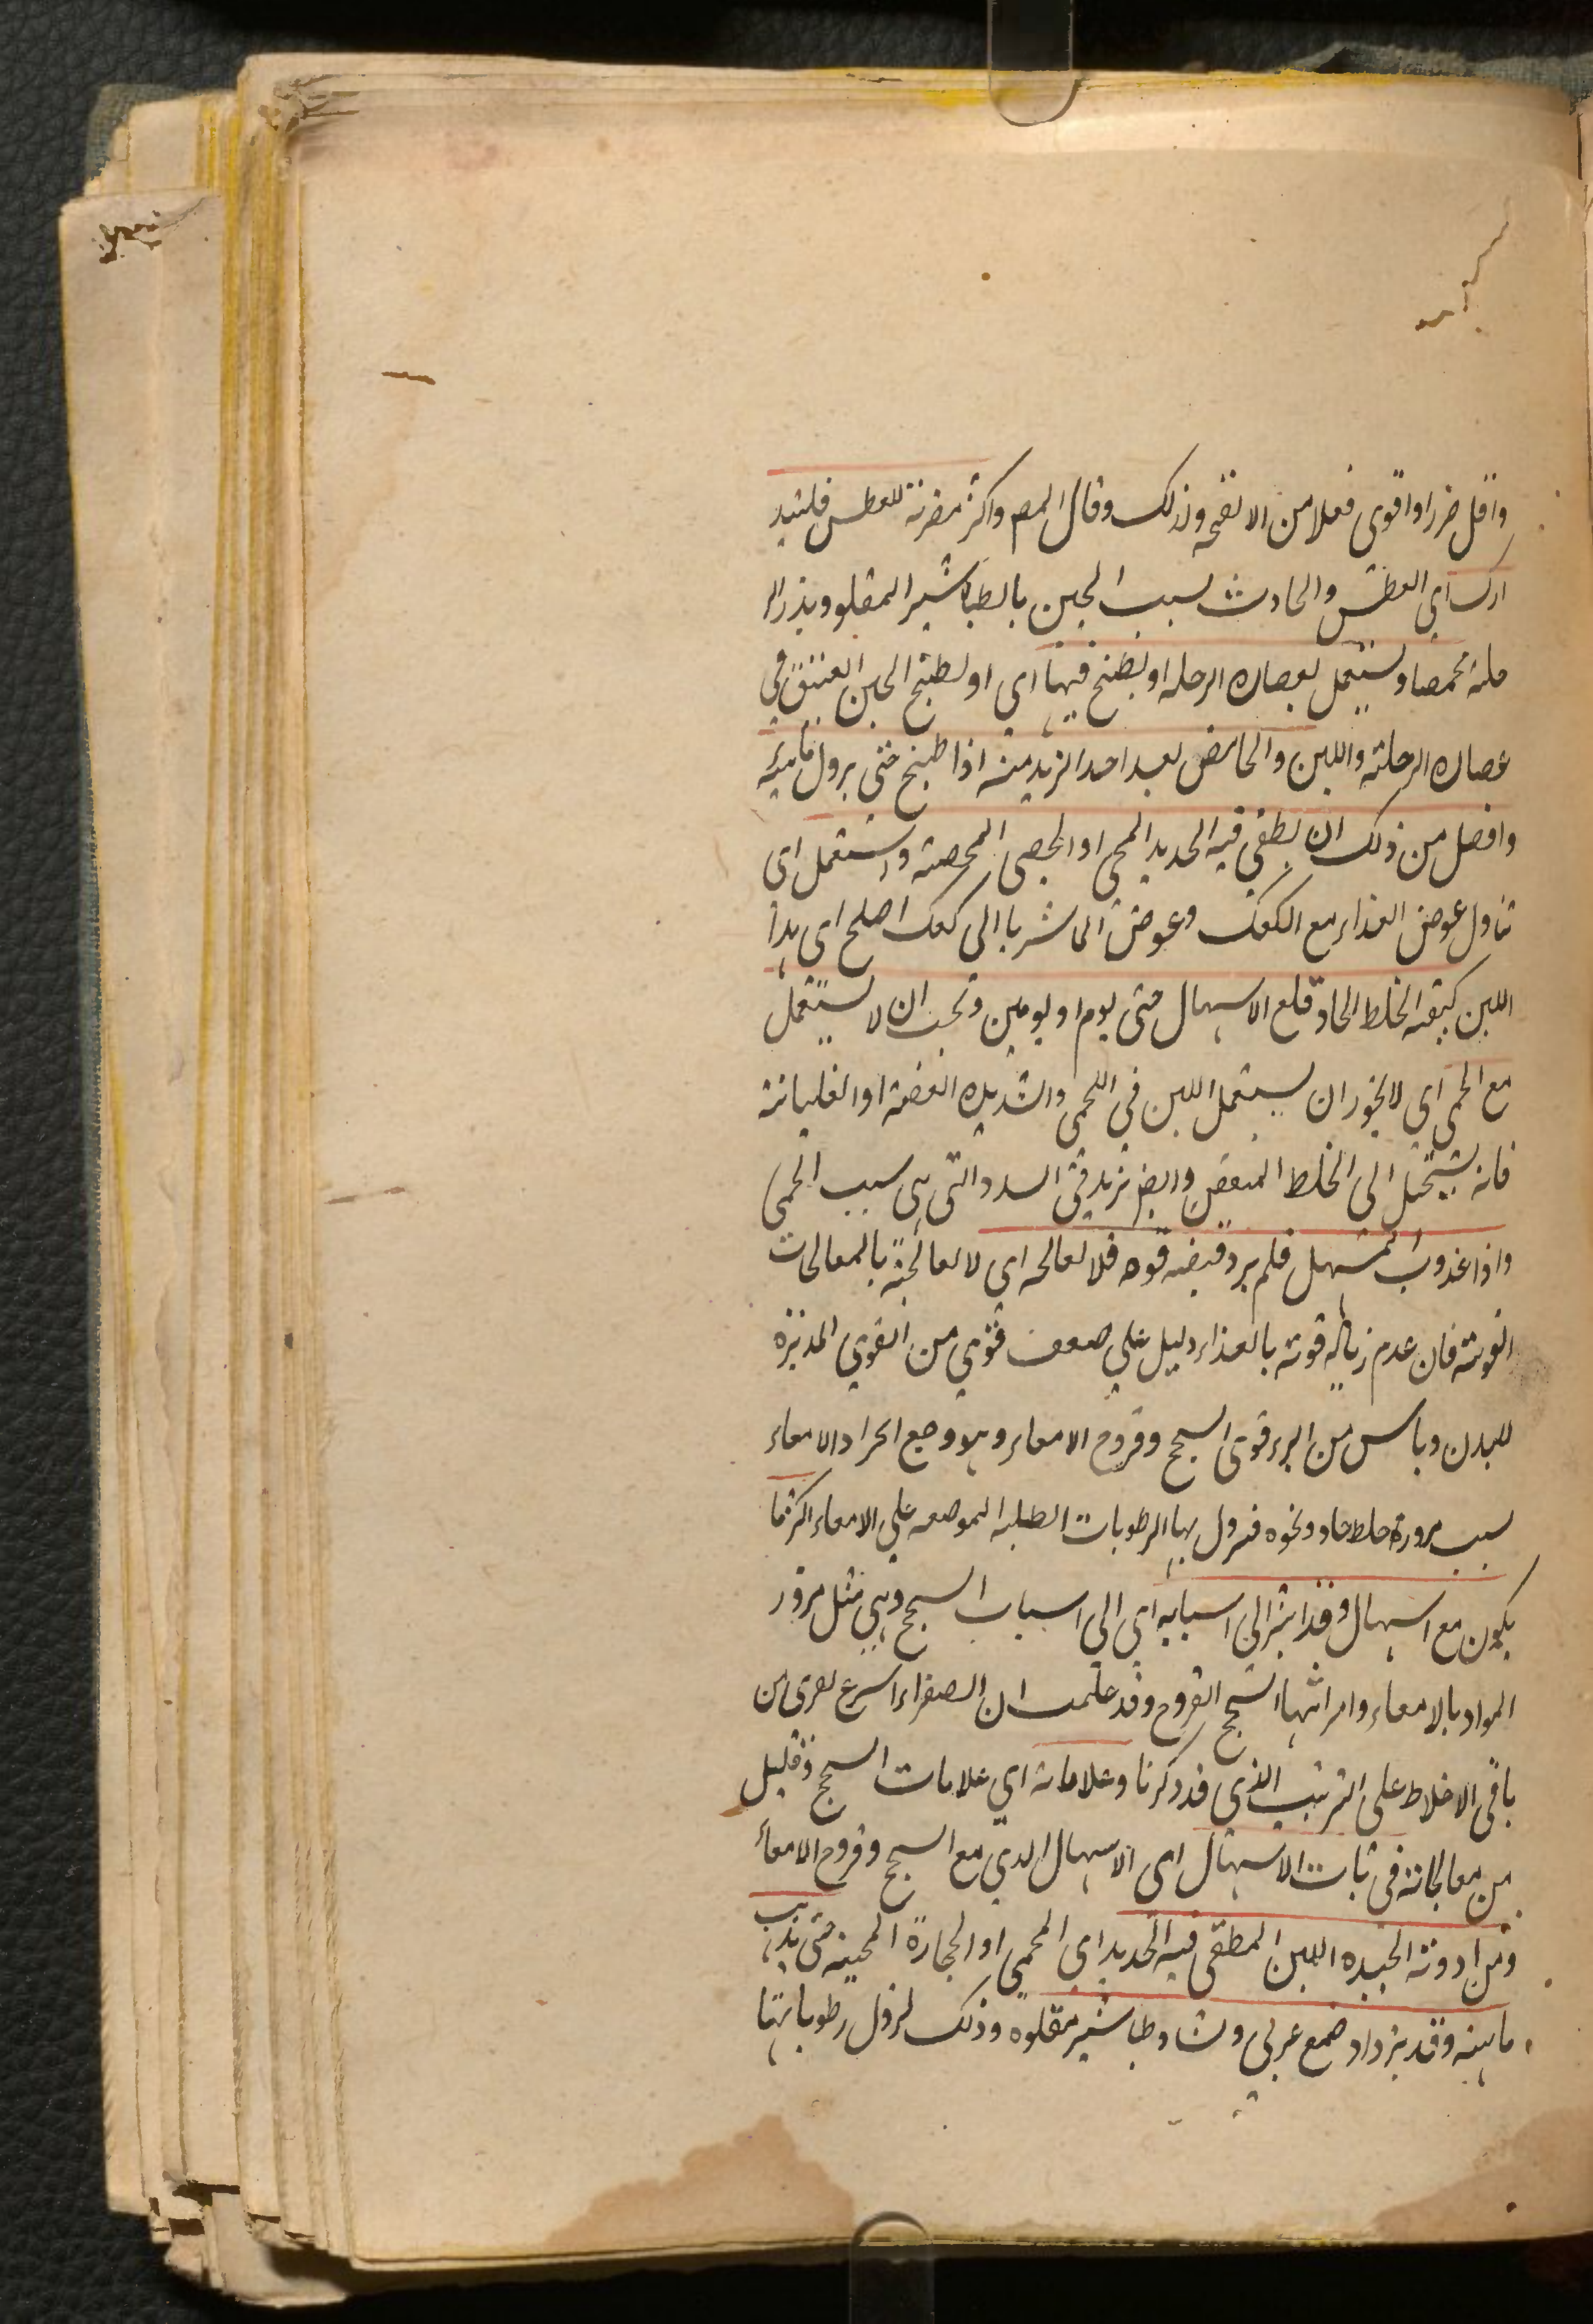 واقل ضررا واقوى فعلا من الانفحه وذلك وقال المصـ واكثر مضرته للعطس فليتد
ارك اي العطش والحادث لسبب الجبن بالطباشير المقلو وبذر الر
جلة محمصا ويستعمل بعصاره الرجله او يطبخ فيها اي او يطبخ الجبن العتيق في
عصاره الرجلته واللبن والحامض بعد اخذ الزبد منه اذا طبخ حتى يزول مائيته
وافضل من ذلك ان يطفى فيه الحديد المحمى او الحصى المحمصة واستعمل اي
تناول عوض الغذاء مع الكعك وعوض الماء شربا الى كعك اصلح اي هذا
اللبن كيفته الخلط الحاد قلع الاسهال حتى يوم او يومين ويجب ان لا يستعمل
مع الحمى اي لا يجوز ان يستعمل اللبن في الحمى والشديده العفنة او الغليانية
فانه يستحيل الى الخلط المتعفن وايضـ يزيد في السدد التي هي سبب الحمى
واذا غذوت المسهل فلم يرد قبضه قوه فلا تعالجه اي لا تعالجته بالمعالجات
القويته فان عدم زياله قوته بالغذاء دليل على ضعف قوي من القوي المدبرة
للبدن وياس من البرء قوى السحج وقروح الامعاء وهو وجع انجراد الامعاء
بسبب مرورة خلط حاد ونحوه فيزول بها الرطوبات الطليه الموضعه علي الامعاء اكثر ما
يكون مع اسهال وقد اشر الى اسبابه اي الى اسباب السحج وهي مثل مرور
المواد بالامعاء وامراثها السحج القروح وقد علمت ان الصفراء اسرع لعرى من
باقي الاخلاط على الترتيب الذي قد ذكرنا وعلاماته اي علامات السحج وقليل
من معالجاته في باب الاسهال اي الاسهال الذي مع السحج وقروح الامعاء
ومن ادوته الجيده اللبن المطفى فيه الحديد اي المحمي او الحجارة المحميه حتى يذهب
مايته وقد يزداد ضمع عربي ونشا وطباشير مقلوه وذلك لزول رطوباتها